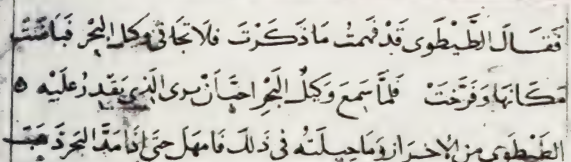 فقال الطيطوى قد فهمت ما ذكرت فلا تخافى وكيل البحر فباضت
مكانها وفرخت فلما سمع وكيل البحر احب أن يرى الذى يقدر عليه ه
الطيطوى من الاحتراز وما حيلته فى ذلك فامهل حتى اذا مد البحر ذهب